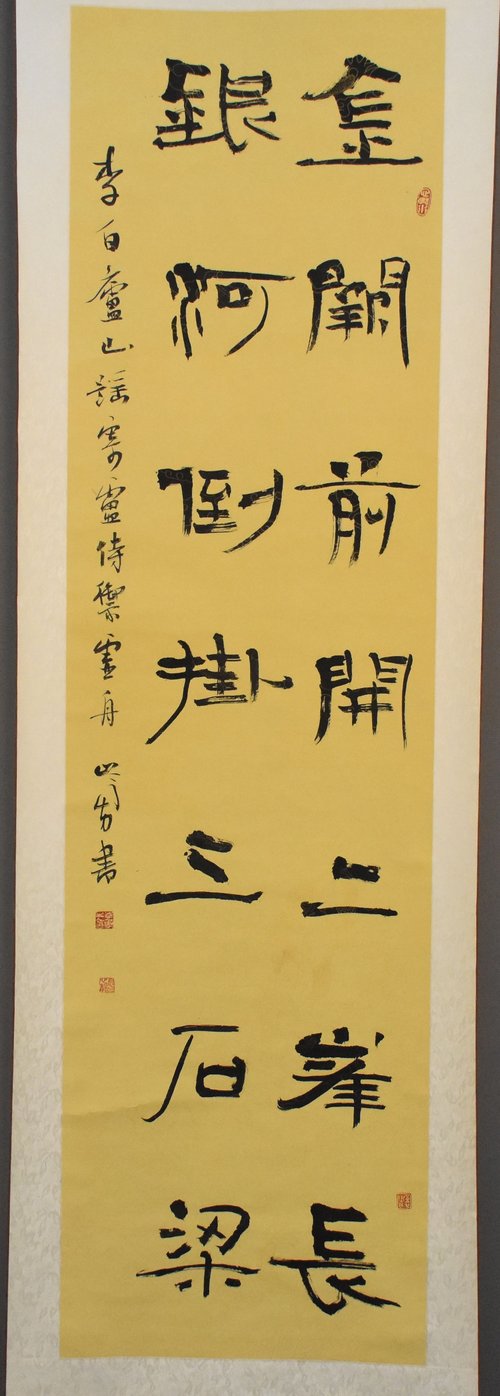 金闕前開二峯長
銀河倒掛三石梁
李白廬山謠寄盧侍禦虛舟 書